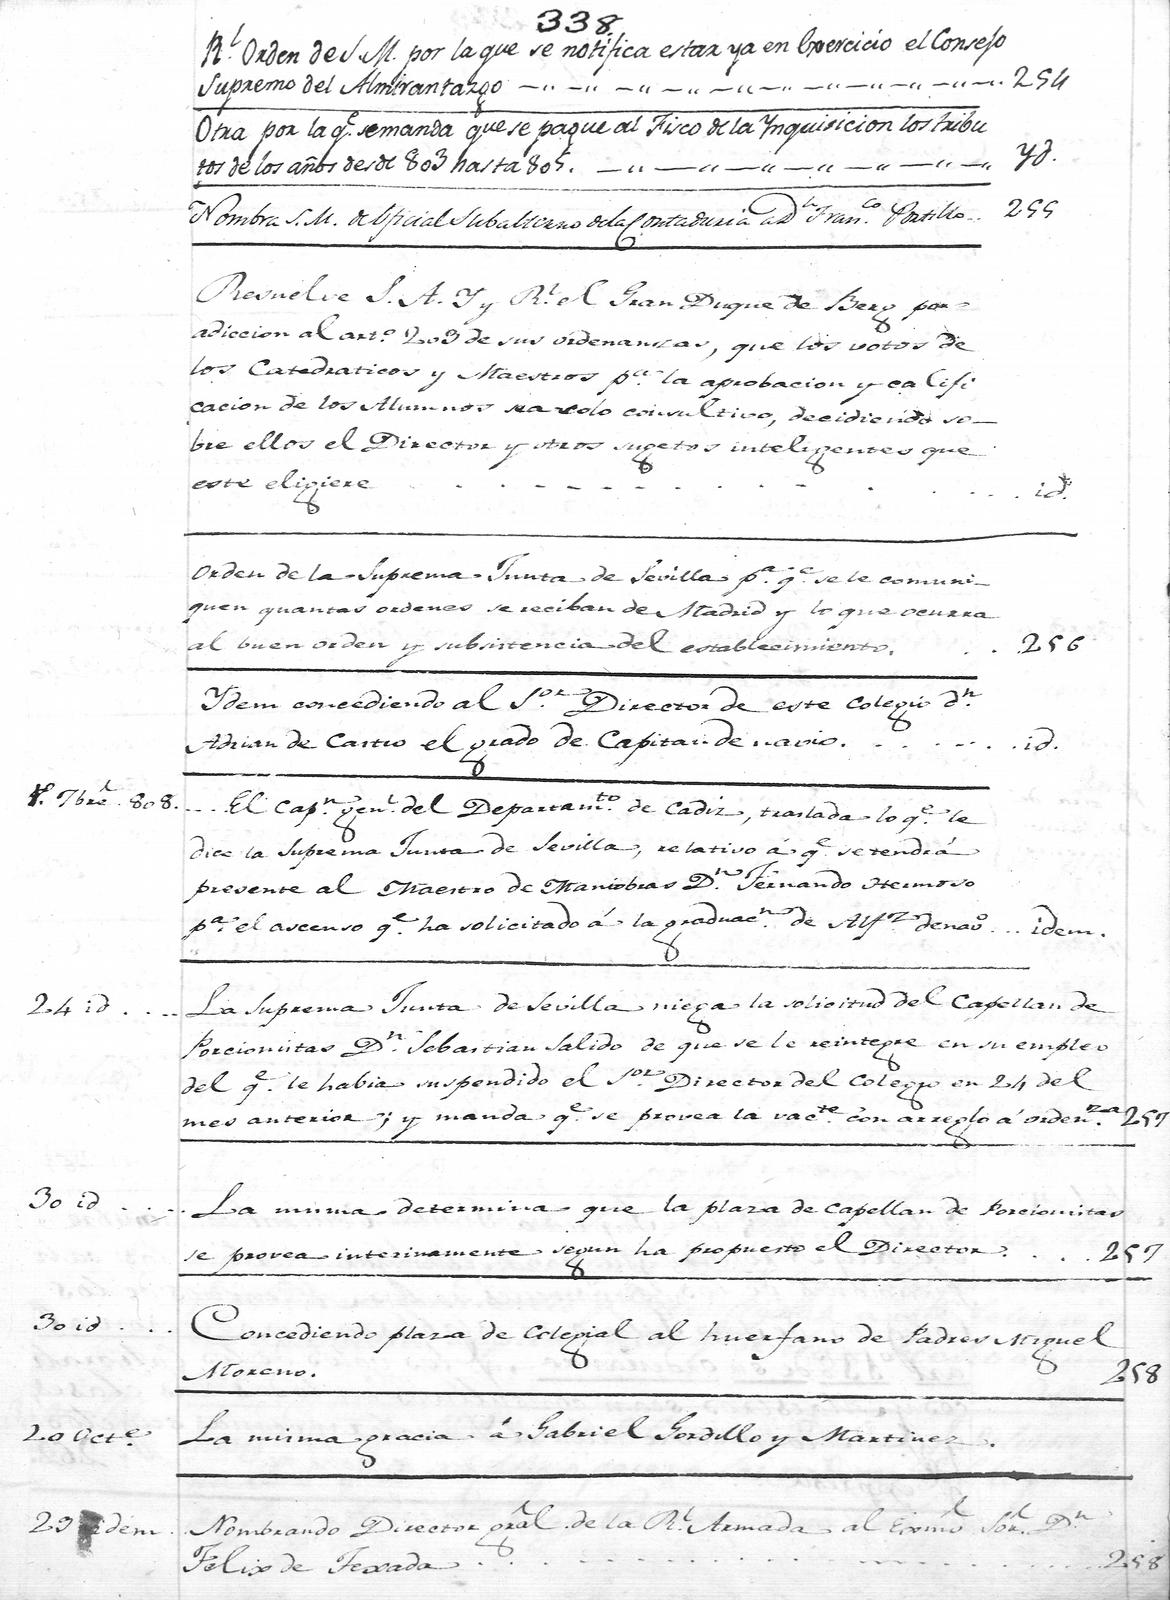 338.
Rl. Orden de S. M. por la que se notifica estar ya en Exercicio el Consejo
Supremo del Almirantazgo 254
Otra por la qe. se manda que se pague al Fisco de la Ynquisicion los tribu
tos de los años desde 803 hasta 805. yd.
Nombra S. M. de Oficial Subalterno de la Contaduria a Dn. Franco. Portillo 255
Resuelve S. A. Y y Rl. el Gran Duque de Berg por
adiccion al arto. 203 de sus ordenanzas, que los votos de
los Catedraticos y Maestros pa. la aprobacion y califi
cacion de los Alumnos sea solo consultivo, decidiendo so-
bre ellos el Director y otros sugetos inteligentes que
este eligiere id.
Orden de la Suprema Junta de Sevilla pa. qe. se le comuni-
quen quantas ordenes se reciban de Madrid y lo que ocurra
al buen orden y subsistencia del establecimiento. 256
Ydem concediendo al Sor. Director de este Colegio dn.
Adrian de Castro el grado de Capitan de navio. id.
7bre. 808. El Capn. genl. del Departamto. de Cadiz, traslada lo qe. le
dice la Suprema Junta de Sevilla, relativo á qe. se tendrá
presente al Maestro de Maniobras Dn. Fernando Hermoso
pa. el ascenso qe. ha solicitado á la graduacn. de Alfz. de nao. idem.
24 id La Suprema Junta de Sevilla niega la solicitud del Capellan de
Porcionistas Dn. Sebastian Salido de que se le reintegre en su empleo
del qe. le habia suspendido el Sor. Director del Colegio en 24 del
mes anterior; y manda qe. se provea la vacte. con arreglo á ordenza. 257
30 id La misma determina que la plaza de Capellan de Porcionistas
se provea interinamente segun ha propuesto el Director. 257
30 id Concediendo plaza de Colegial al huerfano de Padres Miguel
Moreno. 258
20 Octe. La misma gracia á Gabriel Gordillo y Martinez.
23 idem Nombrando Director gral. de la Rl. Armada al Exmo. Sor. Dn.
Felix de Texada 258